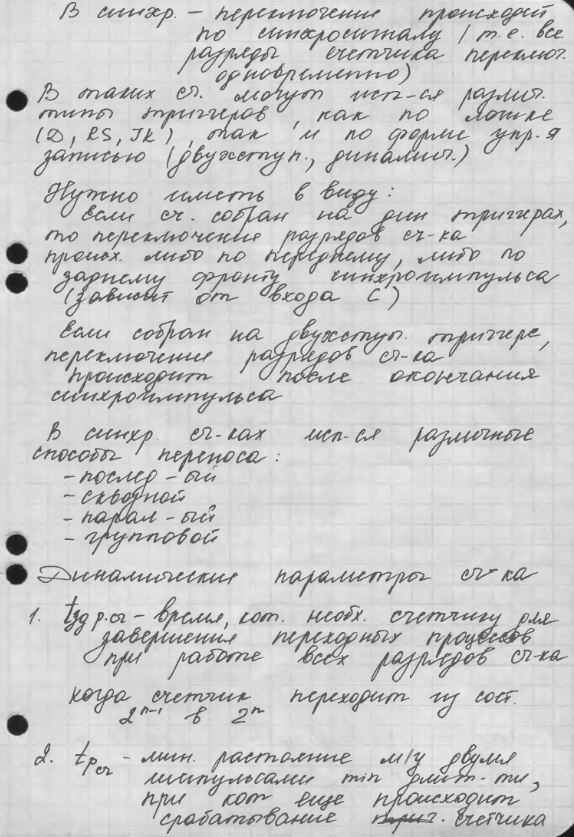 В синхр. – переключение происходит
по синхросигналу (т.е. все
разряды счетчика переключ.
одновременно)
В таких сч. могут исп-ся различ.
типы триггеров, как по логике
(D, RS, JK), так и по форме упр-я
записью (двухступ., динамич.)
Нужно иметь в виду:
Если сч. собран на дин тригерах,
то переключение разрядов сч-ка
происх. либо по переднему, либо по
заднему фронту синхроимпульса
(зависит от входа С)
Если собран на двухступ. триггере,
переключение разрядов сч-ка
происходит после окончания
синхроимпульса
В синхр. сч-ках исп-ся различные
способы переноса:
– послед-ый
– сквозной
– парал-ый
– групповой
Динамические параметры сч-ка
1. tзд р.сч – время, кот. необх. счетчику для
завершения переходных процессов
при работе всех разрядов сч-ка
когда счетчик переходит из сост.
2ⁿ⁻¹ в 2ⁿ
2. tрсч – мин. растояние м/у двумя
импульсами min длит-ти,
при кот еще происходит
срабатывание счетчика